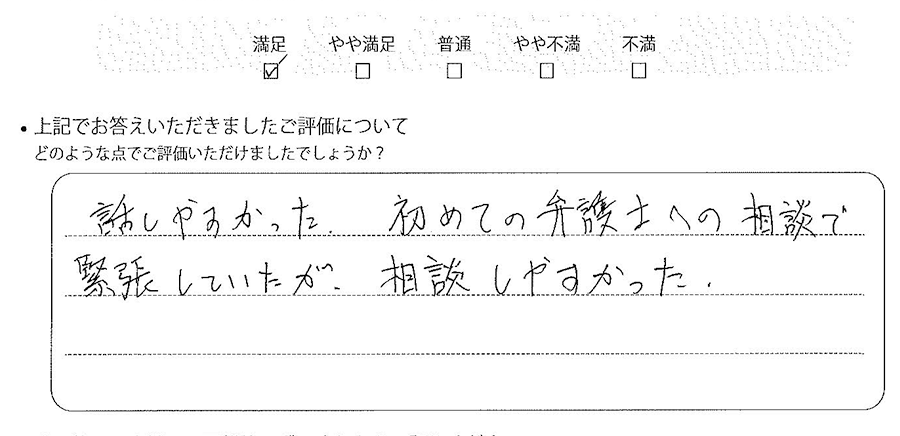 満足 やや満足 普通 やや不満 不満
☑ □ □ □ □
・上記でお答えいただきましたご評価について
どのような点でご評価いただけましたでしょうか？
話しやすかった. 初めての弁護士への相談で
緊張していたが. 相談しやすかった.